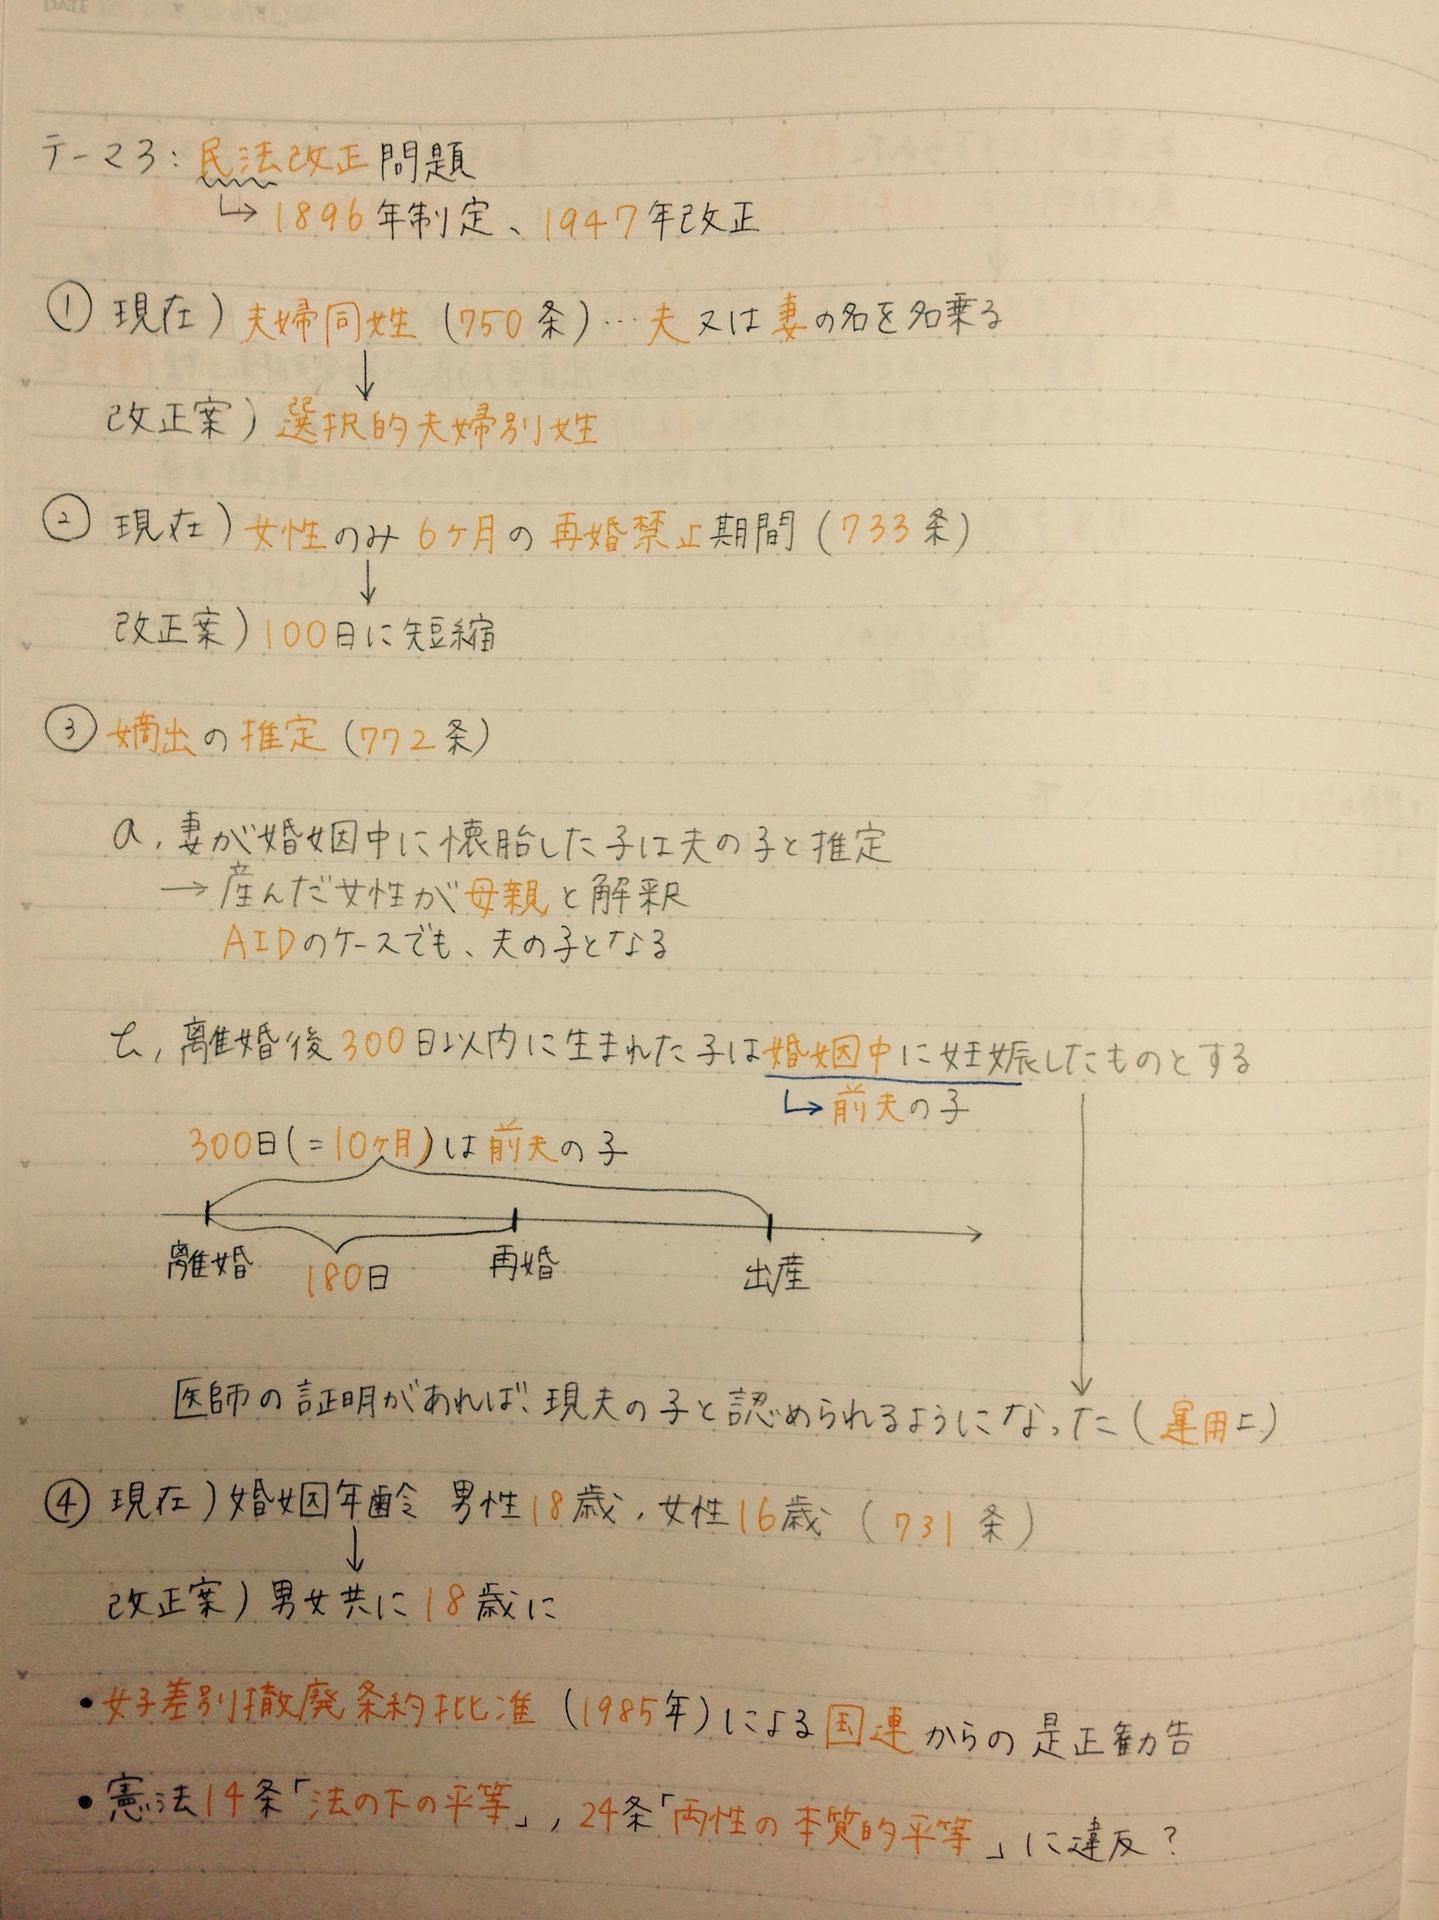 DATE
テーマ3: 民法改正問題
↳ 1896年制定、1947年改正
① 現在) 夫婦同姓 (750条) … 夫又は妻の名を名乗る
改正案) 選択的夫婦別姓
② 現在) 女性のみ6ヶ月の再婚禁止期間 (733条)
改正案) 100日に短縮
③ 嫡出の推定 (772条)
a, 妻が婚姻中に懐胎した子は夫の子と推定
→ 産んだ女性が母親と解釈
AIDのケースでも、夫の子となる
b, 離婚後300日以内に生まれた子は婚姻中に妊娠したものとする
↳ 前夫の子
300日(=10ヶ月)は前夫の子
離婚 180日 再婚 出産
医師の証明があれば、現夫の子と認められるようになった (運用上)
④ 現在) 婚姻年齢 男性18歳, 女性16歳 (731条)
改正案) 男女共に18歳に
• 女子差別撤廃条約批准 (1985年) による国連からの是正勧告
• 憲法14条「法の下の平等」, 24条「両性の本質的平等」に違反?